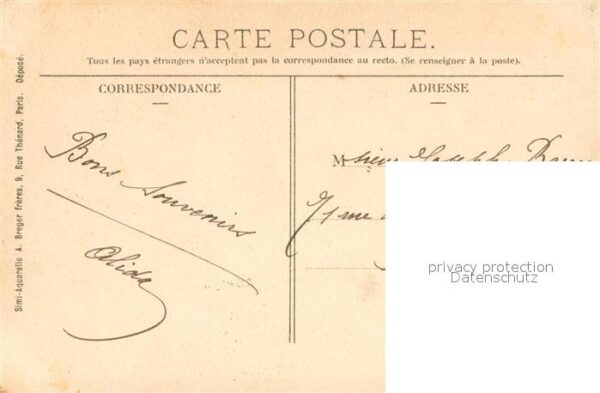 CARTE POSTALE.
Tous les pays étrangers n'acceptent pas la correspondance au recto. (Se renseigner à la poste).
CORRESPONDANCE
ADRESSE
Bons Souvenirs
Alida
Msieur Joseph
71 rue
privacy protection
Datenschutz
Simi-Aquarelle A. Breger frères, 9, Rue Thénard, Paris. Déposé.